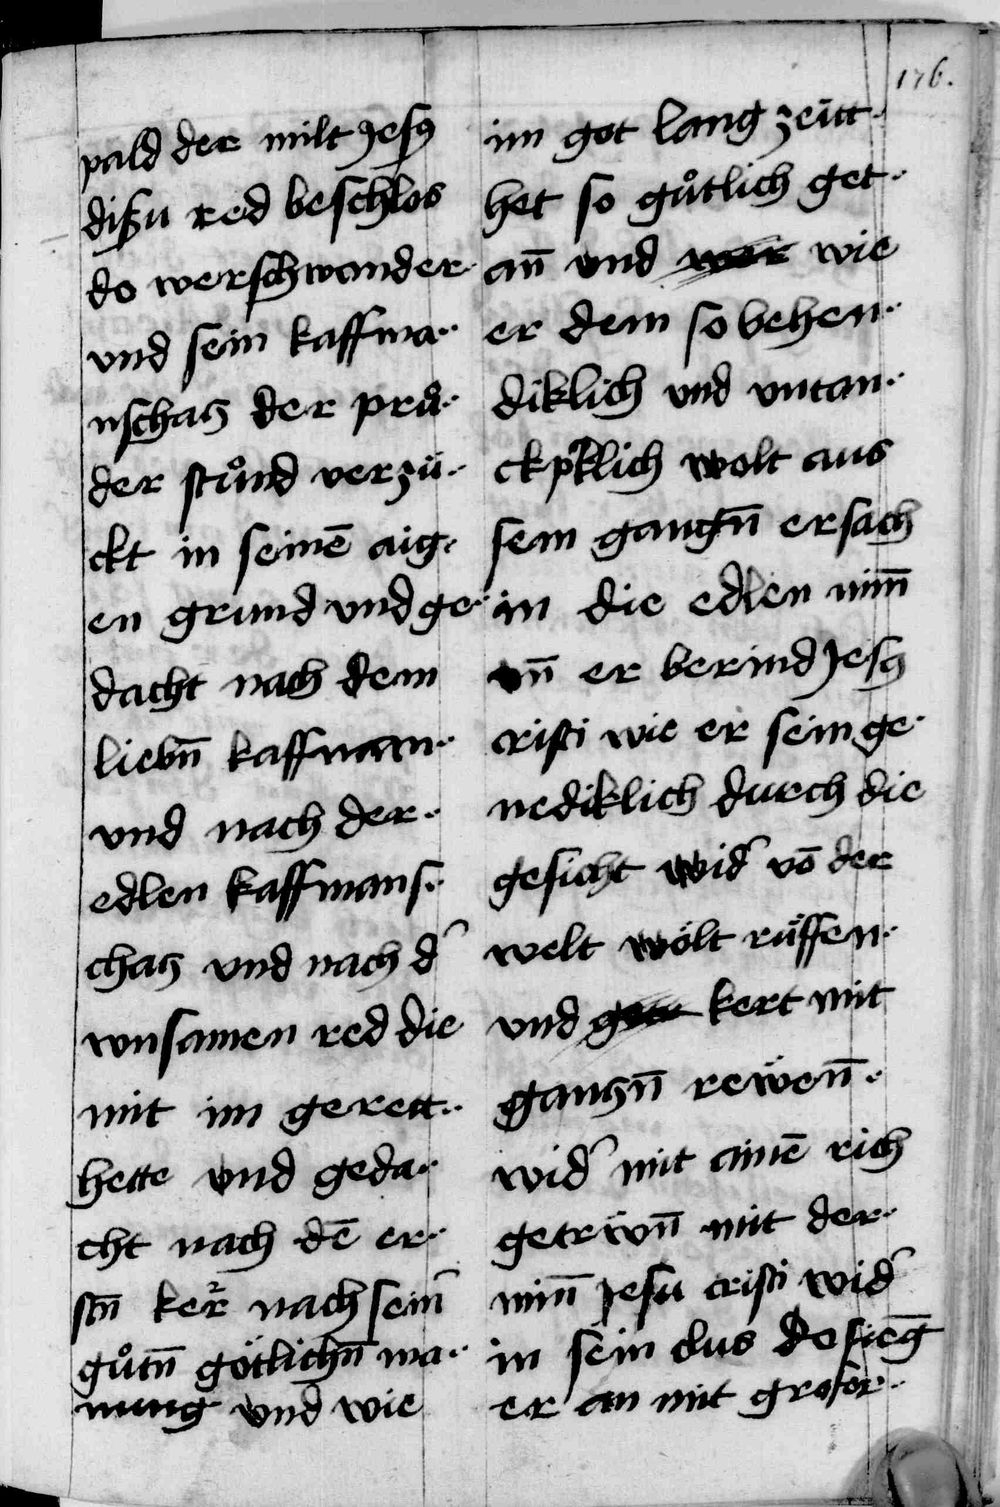 176.
pald der milt Jesus
disßu red beschlos
do werschwander
und sein kaffma..
nschatz der prů..
der stůnd verzü..
ckt in seinē aig.
en grund und ge.
dacht nach dem
liebn̄ kaffman..
und nach der.
edlen kaffmans.
chatz und nach d
wnsamen red die
mit im gerett..
hette und geda..
cht nach dē er.
stn̄ ker nach sein
gůtn̄ götlichn̄ ma.
nung und wie
im got lang zeitt.
het so gůtlich get.
an̄ und wie
er dem so behen.
diklich und untan.
wolt aus
sem gangn̄ er sach
in die edlen min̄
er berind Jesus
cristi wie er sein ge.
nediklich durch die
gesicht wid vō der
welt wölt rüffen.
und kert mit
gantzn̄ rewen̄.
wid mit ainē rich
getrwn̄ mit der.
min̄ Jesu cristi wid
in sein dus do fieg
er an mit groser.